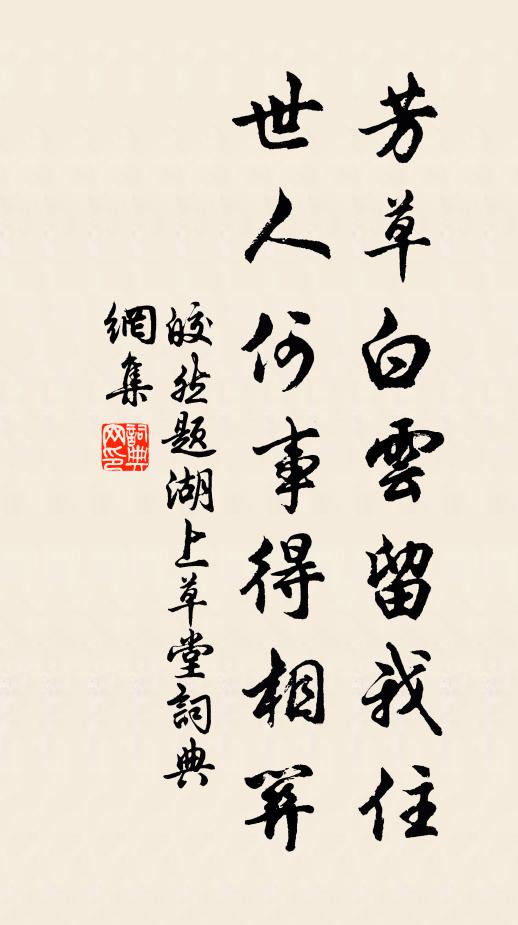 芳草白雲留我住
世人何事得相關
皎然題湖上草堂詞典
網集
詞典網印